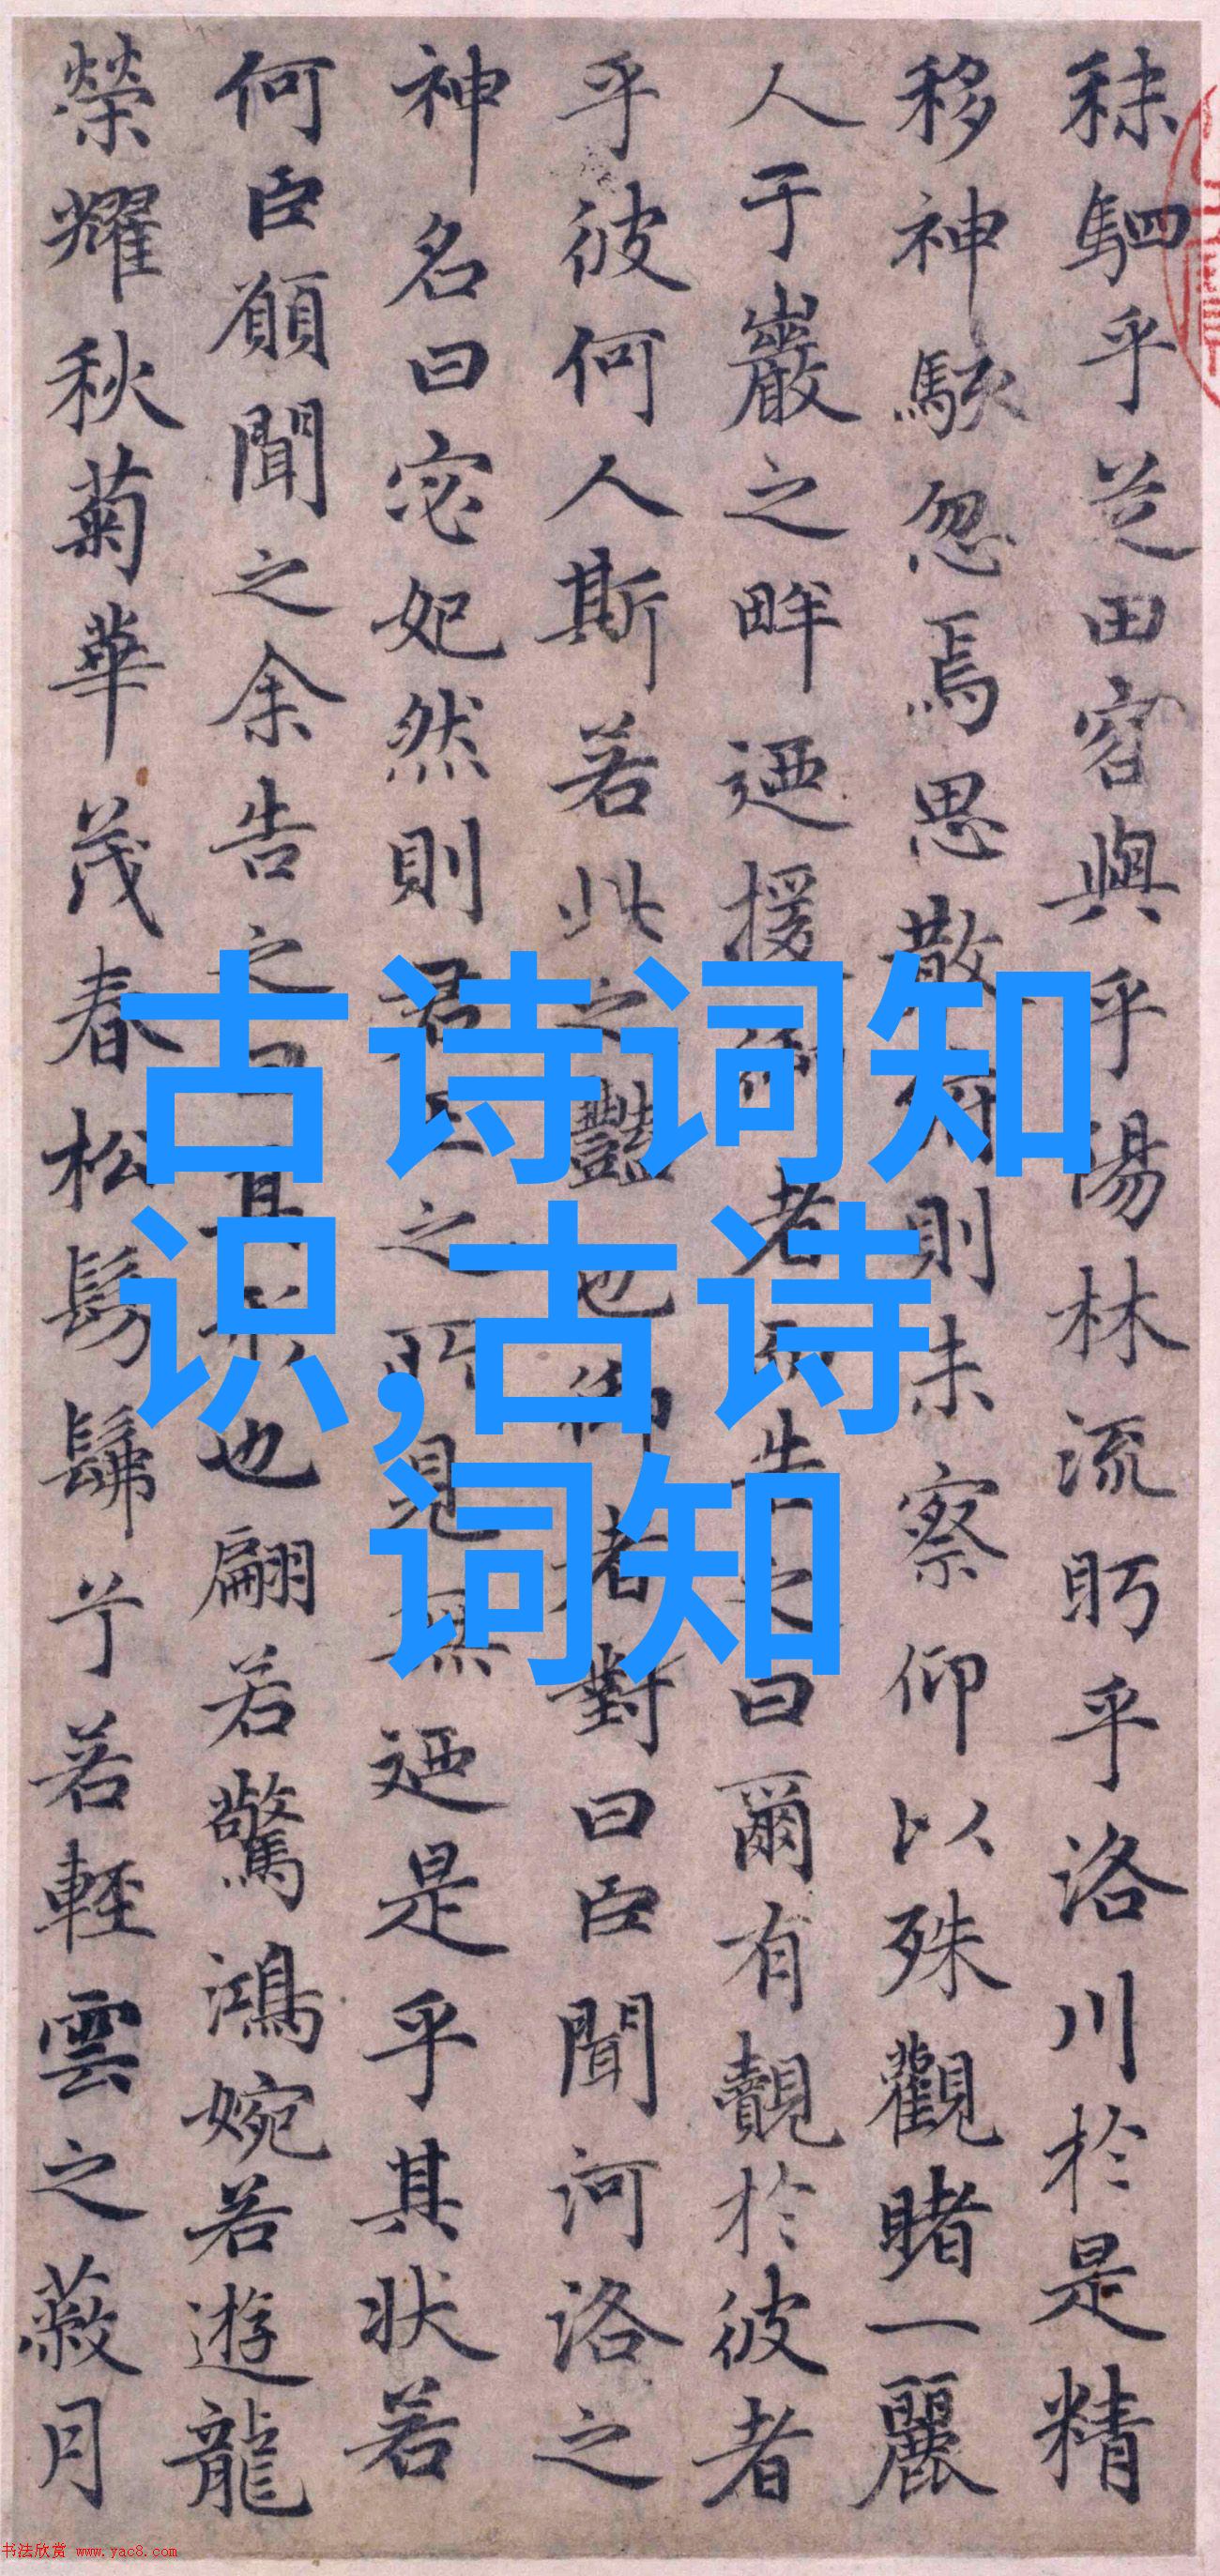 秣駟乎芝田容與乎陽林流眄乎洛川於是精
移神駭忽焉思散俯則未察仰以殊觀睹一麗
人于巖之畔迺援御者而告之曰爾有覿於彼者
乎彼何人斯若此之豔也御者對曰臣聞河洛之
神名曰宓妃然則君王之所見無迺是乎其狀若
何臣願聞之余告之曰其形也翩若驚鴻婉若遊龍
榮耀秋菊華茂春松髣髴兮若輕雲之蔽月
古诗词知
识,古诗
词知
书法欣赏 www.yac8.com